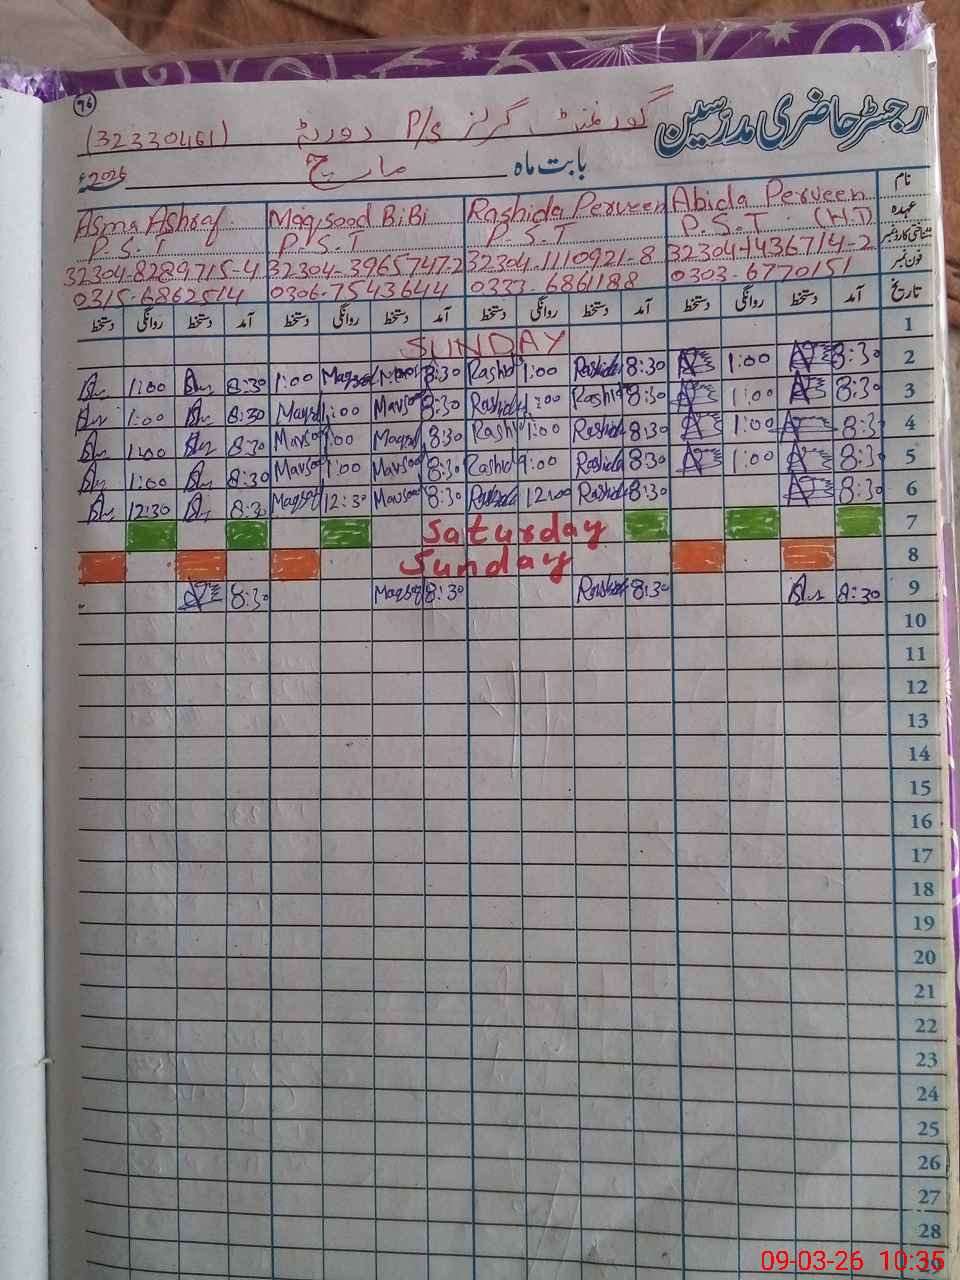 76
رجسٹر حاضری مدرسین
گورنمنٹ گرلز P/S (32330461)
بابت ماہ مارچ 2026ء
نام Abida Perveen Rashida Perveen Maqsood BiBi Asma Ashraf
عہدہ P.S.T (H.T) P.S.T P.S.T P.S.T
شناختی کارڈ نمبر 32304-1436714-2 32304-1110921-8 32304-3965747-2 32304-8289715-4
فون نمبر 0303-6770151 0333-6861188 0306-7543644 0315-6862514
تاریخ آمد دستخط روانگی دستخط آمد دستخط روانگی دستخط آمد دستخط روانگی دستخط آمد دستخط روانگی دستخط
1 SUNDAY
2 8:30 1:00 8:30 Rashida 1:00 Rashid 8:30 1:00 8:30 1:00
3 8:30 1:00 8:30 Rashid 1:00 Rashid 8:30 1:00 8:30 1:00
4 8:30 1:00 8:30 Rashid 1:00 Rashi 8:30 1:00 8:30 1:00
5 8:30 1:00 8:30 Rashida 1:00 Rashid 8:30 1:00 8:30 1:00
6 8:30 8:30 Rashid 12:00 8:30 12:30 Maqsod 8:30 12:30
7 Saturday
8 Sunday
9 8:30 8:30 8:30 Maqsod 8:30
10
11
12
13
14
15
16
17
18
19
20
21
22
23
24
25
26
27
28
29
09-03-26 10:35